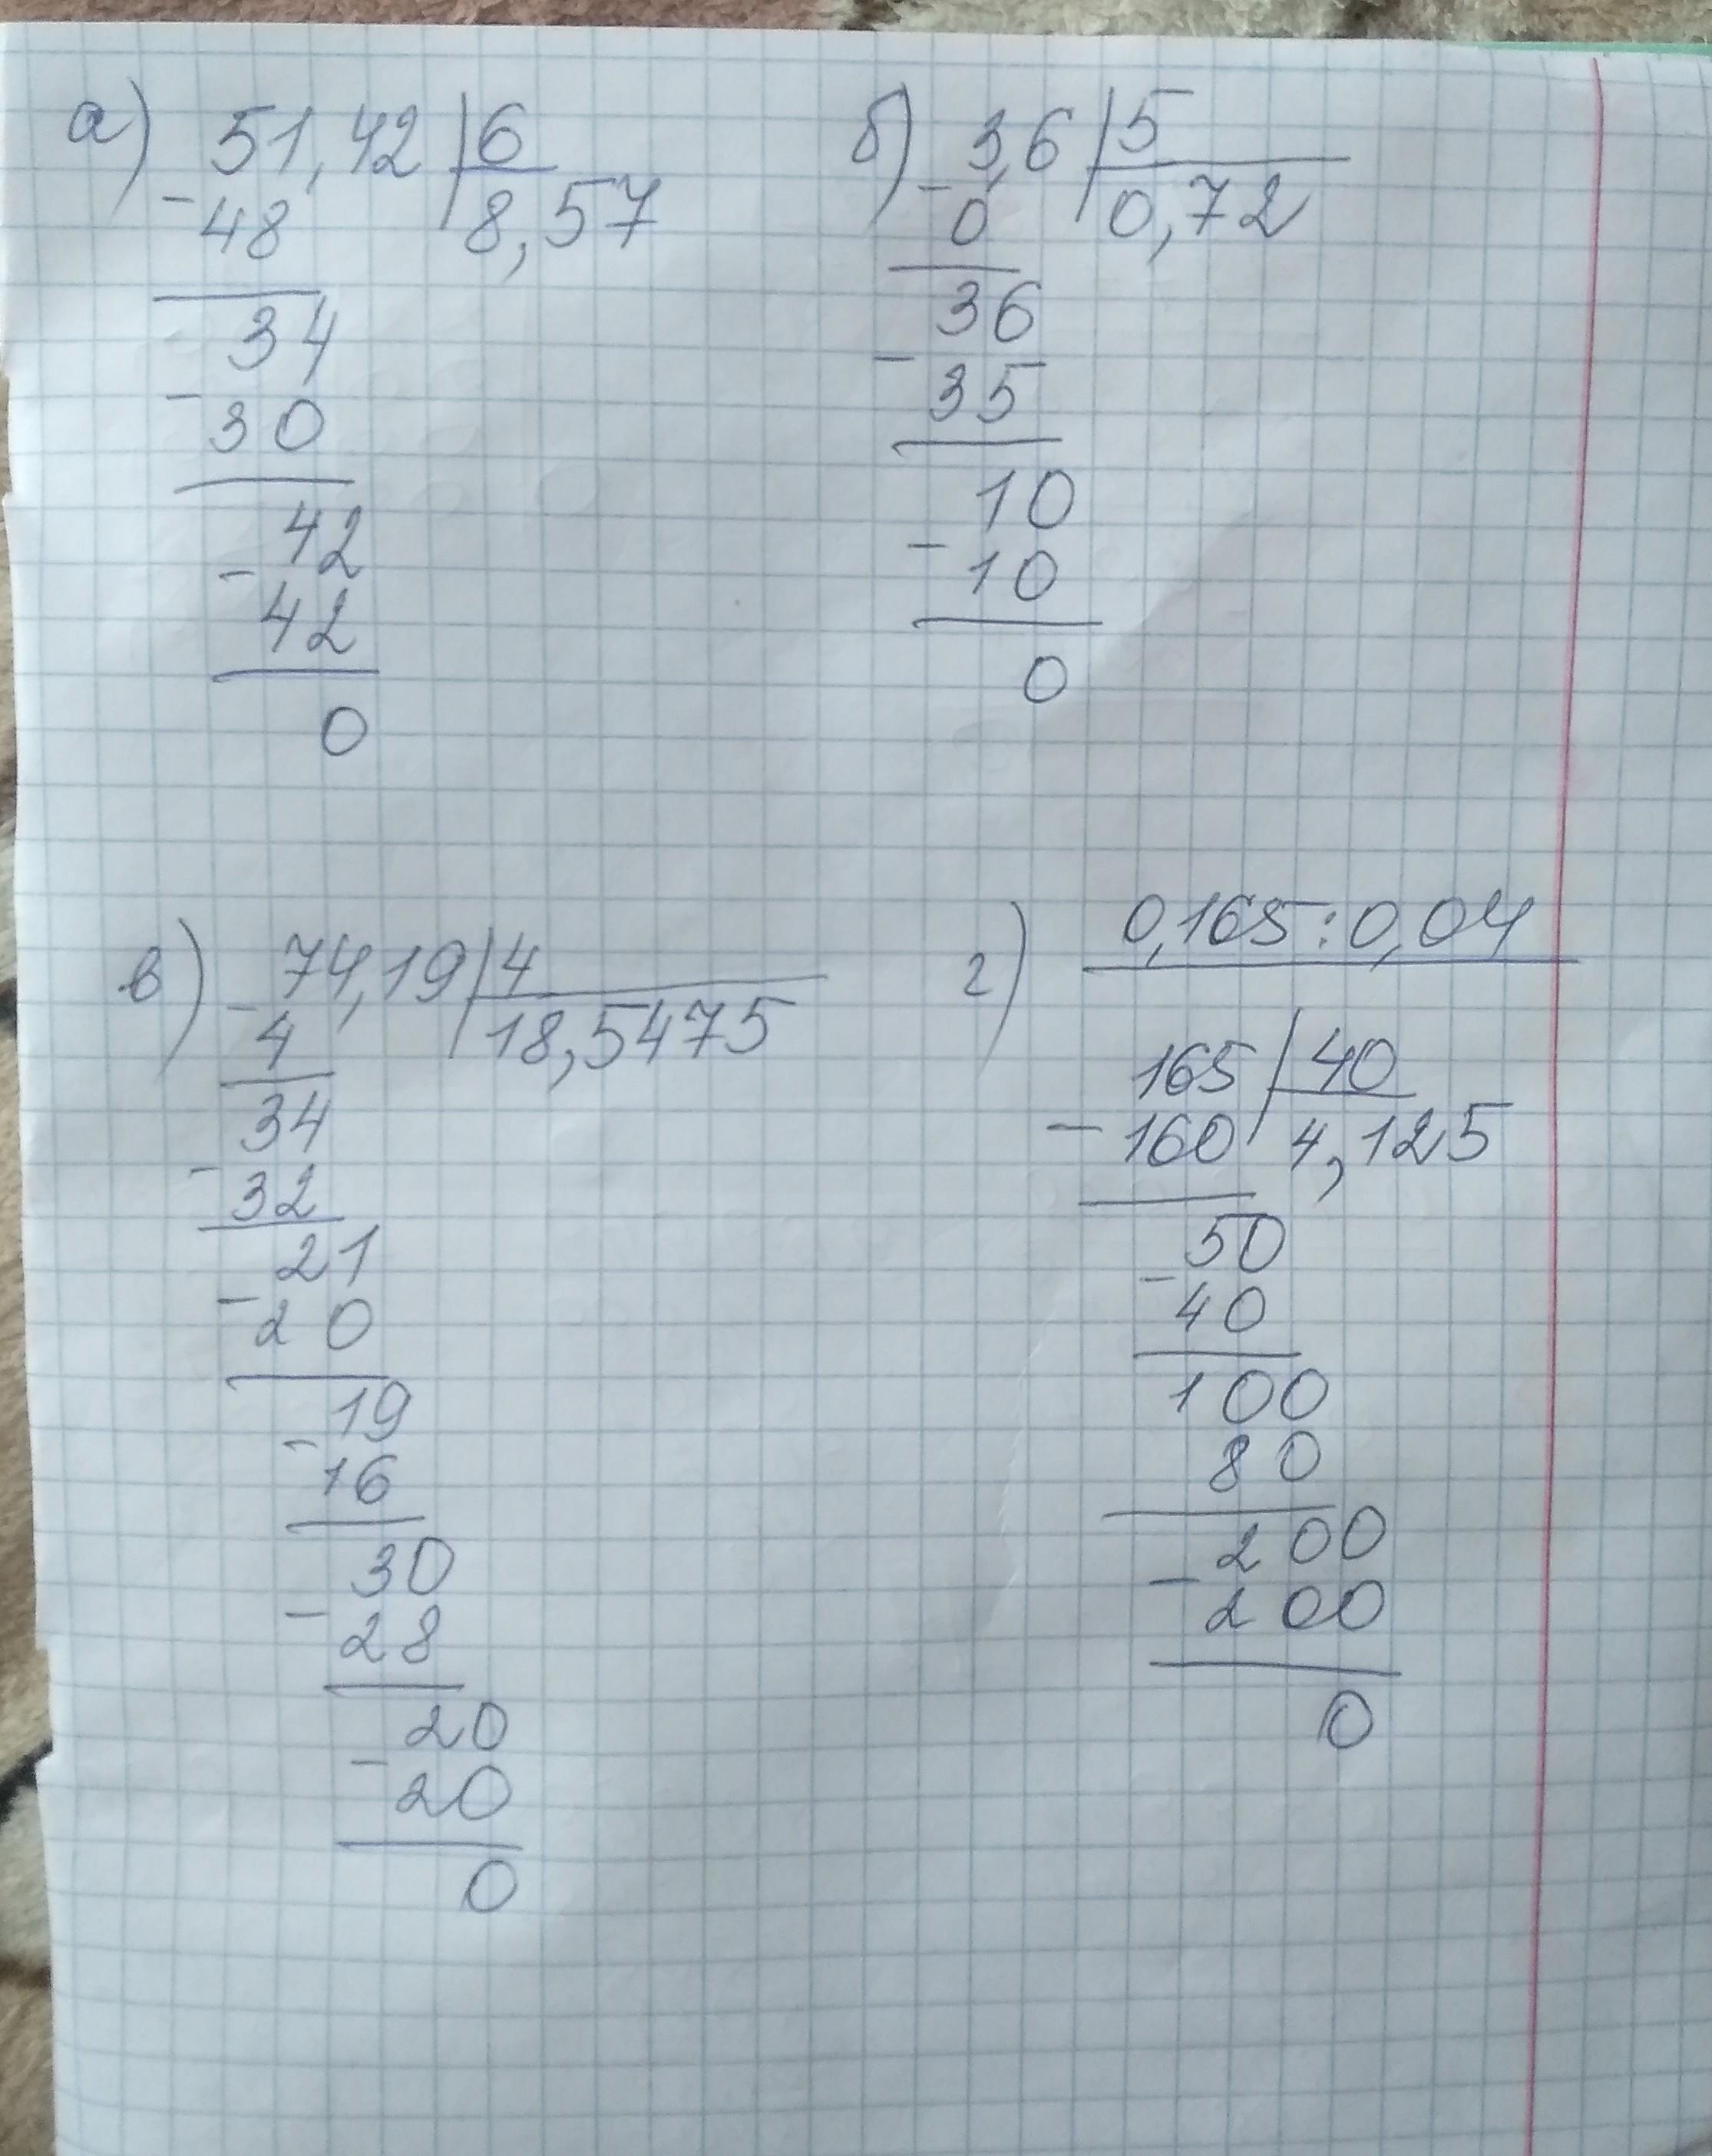 а) 51,42 | 6
- 48 | 8,57
34
- 30
42
- 42
0
б) 3,6 | 5
- 0 | 0,72
36
- 35
10
- 10
0
в) 74,19 | 4
- 4 | 18,5475
34
- 32
21
- 20
19
- 16
30
- 28
20
- 20
0
г) 0,165 : 0,04
165 | 40
- 160 | 4,125
50
- 40
100
80
200
- 200
0